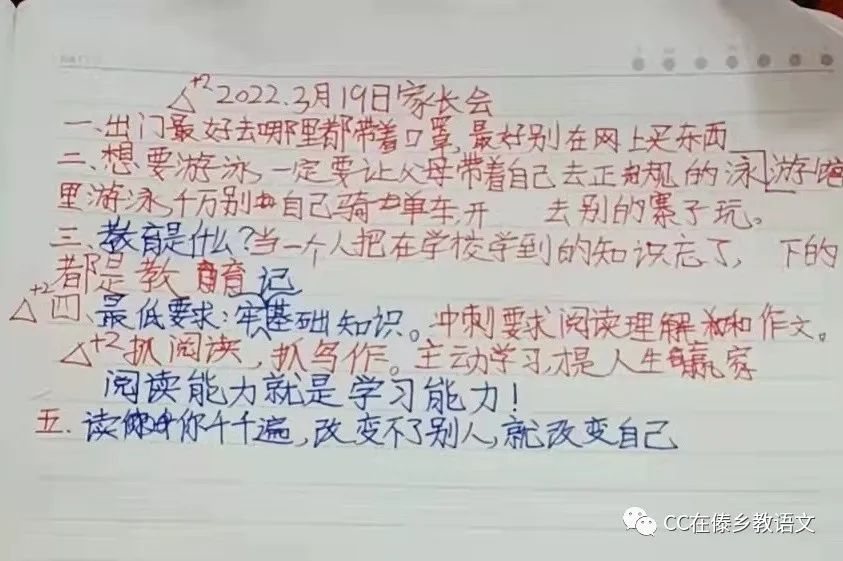 △+2 2022.3月19日家长会
一、出门最好去哪里都带着口罩,最好别在网上买东西
二、想要游泳,一定要让父母带着自己去正规的泳游馆
里游泳,千万别自己骑单车,开 去别的寨子玩。
三、教育是什么?当一个人把在学校学到的知识忘了, 下的
都是教育
△+2 四、最低要求:牢记基础知识。冲刺要求阅读理解和作文。
△+2 抓阅读,抓写作。主动学习,才是人生赢家
阅读能力就是学习能力!
五、读你千千遍,改变不了别人,就改变自己
CC在傣乡教语文